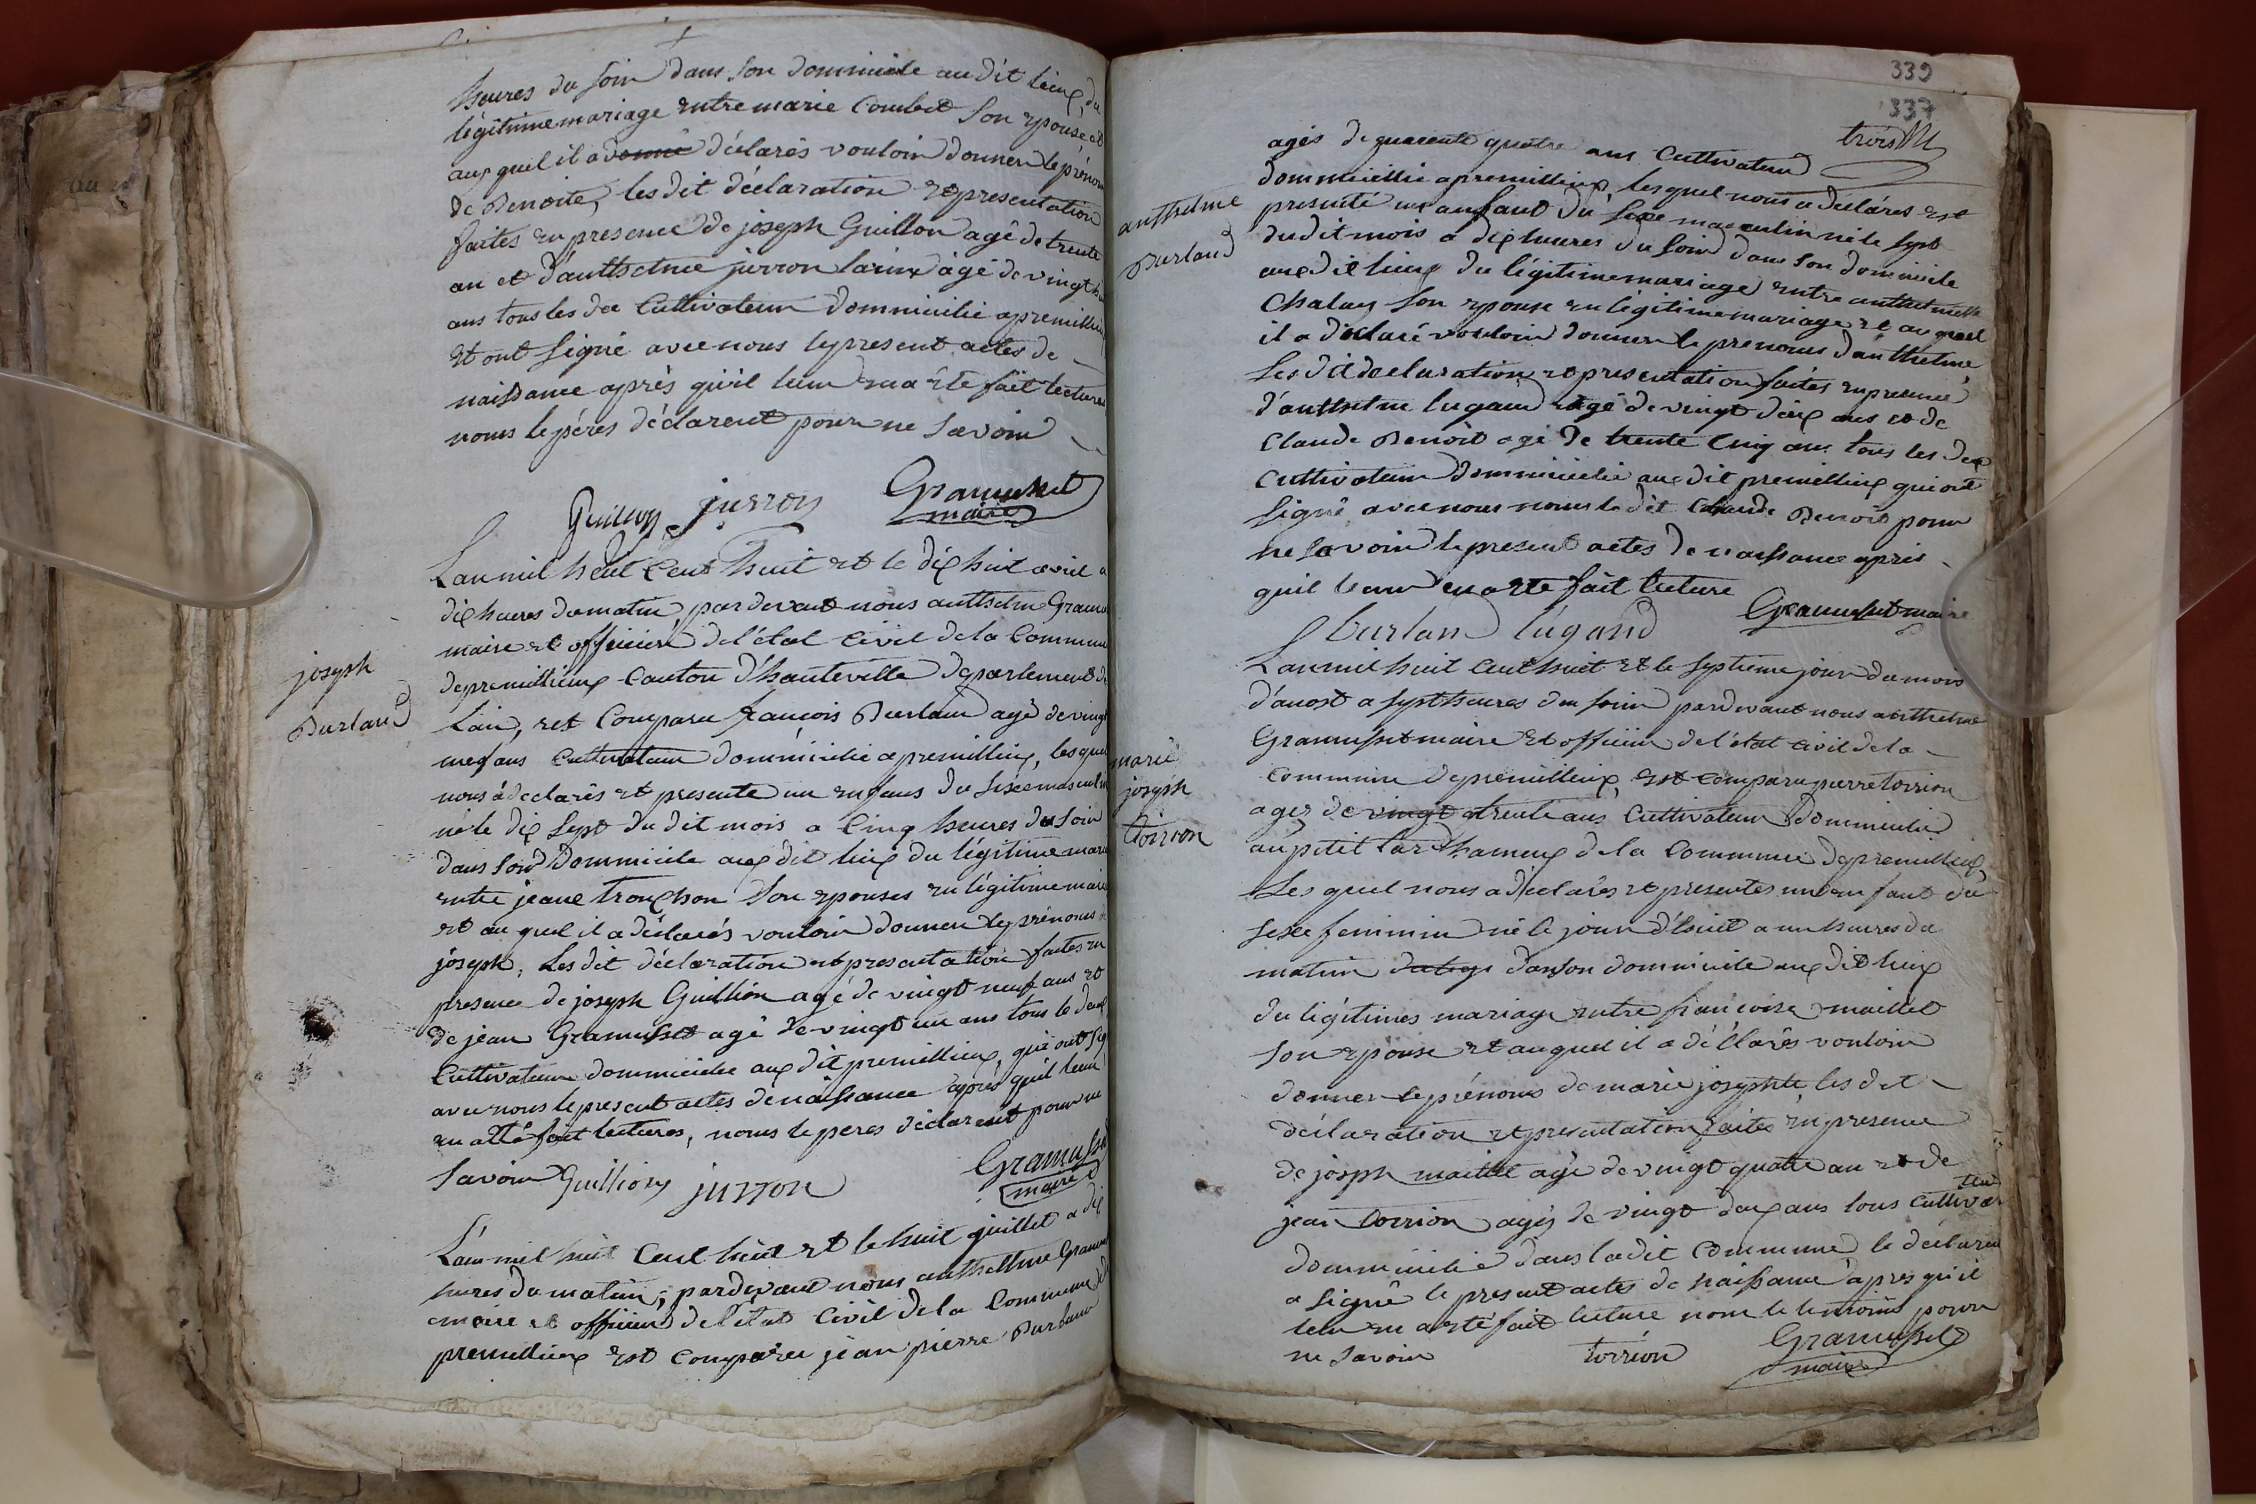 heures du soir dans son dommicile audit lieux, du
légitime mariage entre marie Combet son epouse et
auxquel il a donné déclarés vouloir donner le prénom
de Benoite, les dit déclaration et presentation
faites en presence de joseph Guillon agé de trente
an et d'anthelme jurron larine agé de vingt
ans tous les deu Cultivateur dommicilié apremillieu
et ont signé avec nous le present actes de
naissance après quil leur en a ete fait lecture
nous le péres déclarent pour ne savoir
Guillon jurron Gramusset
maire
joseph
Burland
L'an mil huit Cent huit et le dix huit avril a
dix heures du matin, pardevant nous anthelme Gramu
maire et officier de l'état Civil de la Commune
de premillieux Canton d'hauteville departement de
L'ain, est Comparu francois Burland agé de vingt
neuf ans Cultivateur dommicilié a premillieux, les quel
nous a declarés et presente un enfans du sexe masculin
né le dix sept du dit mois a Cinq heures du soir
dans son dommicile aux dit lieux du légitime maria
entre jeane trouchon son epouses en légitime maria
et au quel il a déclarés vouloir donner le prénoms de
joseph, Les dit déclaration et presentation faites en
presence de joseph Guillion agé de vingt neuf ans et
de jean Gramusset agé de vingt un ans tous le deux
Cultivateur dommicilie aux dit premillieux, qui ont sig
avec nous le present actes de naissance après quil leur
en a été fait lectures, nous le peres déclarent pour ne
savoir Guillion jurron Gramusset
maire
L'an mil huit Cent huit et le huit juillet a dix
hures du matin, pardevant nous anthelme Gramu
maire et officier de l'état Civil de la Commune de
premillieux est Comparu jean pierre Burland
339
337
trois
agés de quarente quatre ans Cultivateur
anthelme
Burland
dommicillié a premillieux les quel nous a déclarés et
presenté un anfant du sexe masculin né le sept
du dit mois a dix heures du soir dans son domicile
aux dit lieux du légitime mariage entre anthelmette
Chalay son epouse en legitime mariage et au quel
il a déclaré vouloir donner le prenoms d'anthelme
Les dit declaration et presentation faites en presence
d'anthelme lugand agé de vingt deux ans et de
Claude Benoit agé de trente Cinq ans tous les deux
Cultivateur dommicilié aux dit premillieux qui ont
signé avec nous nous le dit Claude Benoit pour
ne savoir le present actes de naissance après
quil leur en a ete fait lecture
Gramusset maire
burland lugand
L'an mil huit cent huit et le septieme jour du mois
d'aoost a sept heures du soir pardevant nous anthelme
Gramusset maire et officier de l'état civil de la
marie
joseph
toirion
Commune de premillieux est comparu pierre torrion
ages de vingt trente ans Cultivateur dommicilié
au petit lar hameux de la Commune de premillieux
Les quel nous a déclarés et presentes un enfant du
sexe feminin né le jour d'huit a un heures du
matin dans son dommicile aux dit lieux
du légitimes mariage entre francoise maillet
son epouse et auquel il a déclarés vouloir
donner le prénoms de marie josephte les dit
déclaration et presentation faites en presence
de joseph maillet agé de vingt quatre an et de
jean torrion agés de vingt deux ans tous Cultiva
teur
dommicilié dans ladit Commune le declaran
a signé le present actes de naissance après quil
leur en a eté fait lecture nom le temoins pour
ne savoir torrion Gramusset
maire